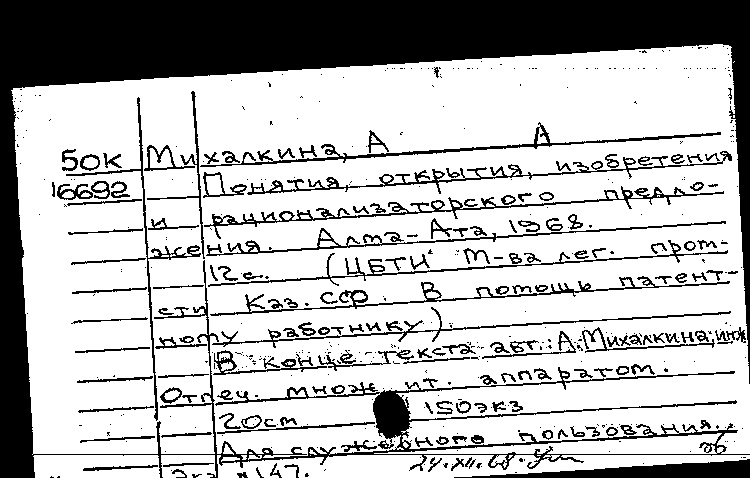 50К Михалкина, А А
16692 Понятия, открытия, изобретения
и рационализаторского предло-
жения. Алма-Ата, 1968.
12с. (ЦБТИ М-ва лег. пром-
сти Каз. ССР. В помощь патент-
ному работнику).
В конце текста авт.: А. Михалкина, инж
Отпеч. множ ит. аппаратом.
20см 150экз
Для служебного пользования.
Экз №147. 24.XII.68.